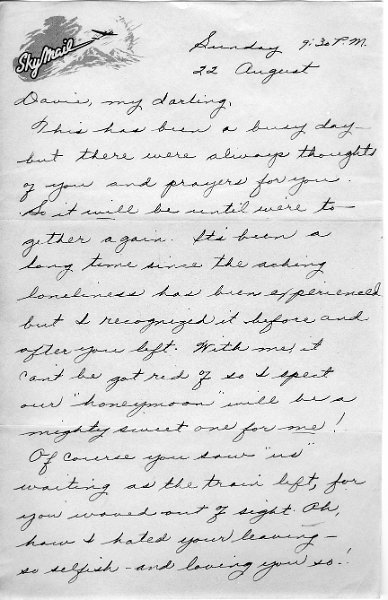 Sky Mail
Sunday 9:30 P.M.
22 August
Davie, my darling,
This has been a busy day—
but there were always thoughts
of you and prayers for you.
So it will be until we're to-
gether again. It's been a
long time since the aching
loneliness has been experienced
but I recognized it before and
after you left. With me, it
can't be got rid of so I spect
our "honeymoon" will be a
mighty sweet one for me!
Of course you saw "us"
waiting as the train left, for
you waved out of sight. Oh,
how I hated your leaving—
so selfish - and loving you so!